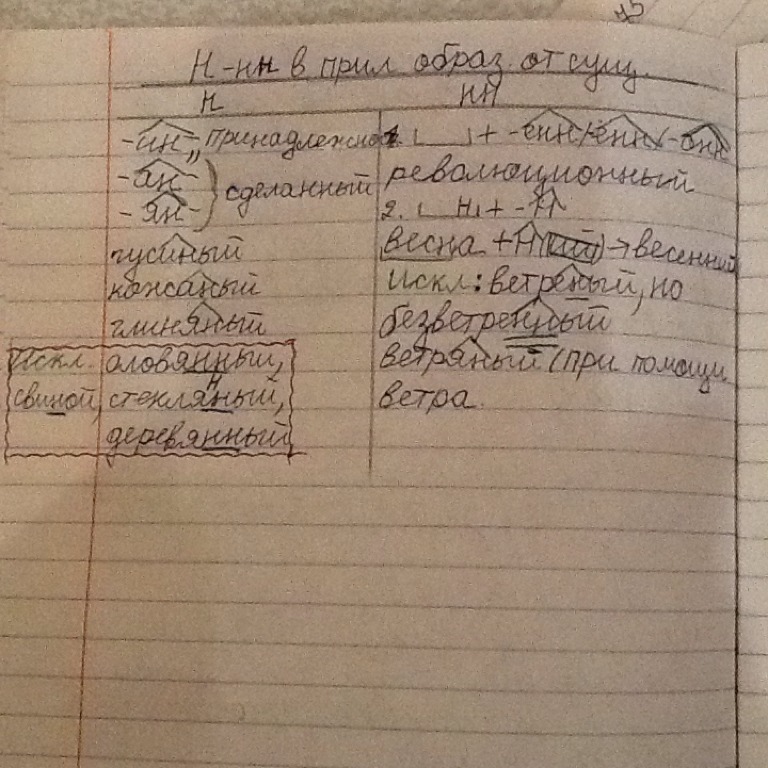 Н-нн в прил образ. от сущ.
Н
-ин-, принадлежно
-ан-
-ян- } сделанный
гусиный
кожаный
глиняный
Искл. оловянный,
свиной, стеклянный,
деревянный
НН
1. + -енн-/-ённ-/-онн-
революционный
2. н + -н-
весна + н(ий) → весенний
Искл: ветреный, но
безветренный
ветряный (при помощи
ветра.